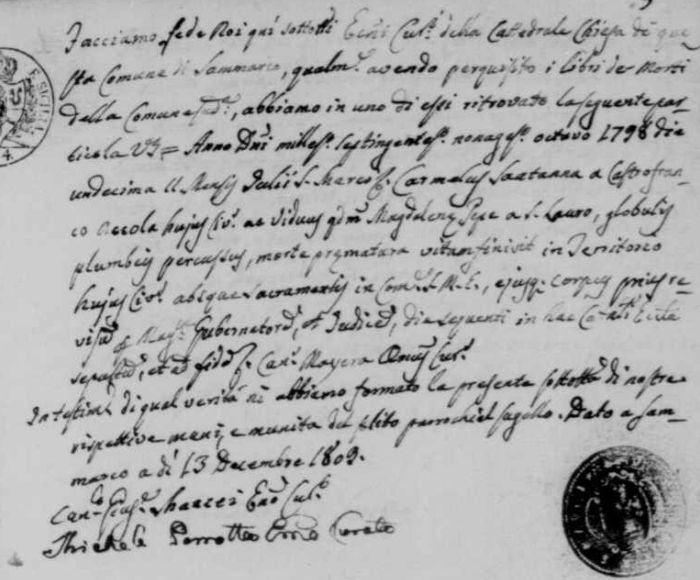 Facciamo fede Noi qui sottotti Ecni Curi della Cattedrale Chiesa di que
sta Comune di Sammarco, qualmte avendo perquisito i libri de Morti
della Comune sda, abbiamo in uno di essi ritrovato la seguente par
ticola Vz = Anno Dni millesº septingentesº nonagesº octavo 1798 die
undecima Mensis Julii S. Marco Carmelus Santanna a Castrofran
co accola hujus Civis ac viduus qdm Magdalene Pepe a S. Lauro, globulis
plumbeis percussus, morte prematura vitam finivit in Territorio
hujus Civis absque sacramentis in Come S. M. E., ejusqe corpus prius re
visu Gubernatore, et Judice, die sequenti in hac Ecclia
sepultu, et ad fide Cans Mayera Curs
In testima di qual verità ni abbiamo formato la presente sottotta di nostre
rispettive mani, e munita del slito parrochial sugello. Dato a Sam
marco a dì 13 Decembre 1809.
Cane Ecno Curo
Michele Perrotta Ecno Curato